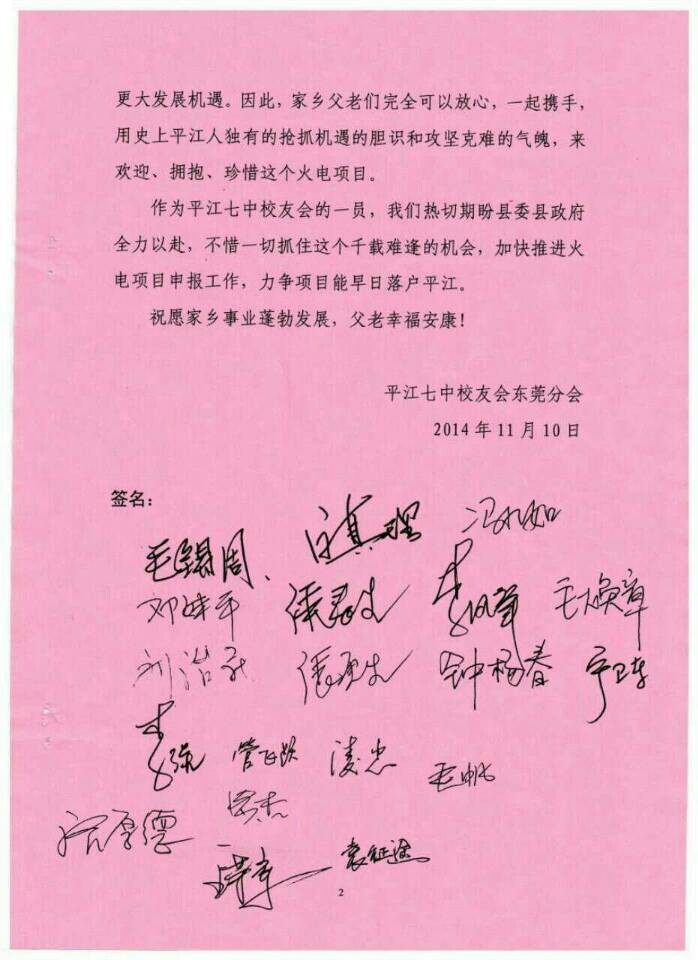 更大发展机遇。因此，家乡父老们完全可以放心，一起携手，
用史上平江人独有的抢抓机遇的胆识和攻坚克难的气魄，来
欢迎、拥抱、珍惜这个火电项目。
作为平江七中校友会的一员，我们热切期盼县委县政府
全力以赴，不惜一切抓住这个千载难逢的机会，加快推进火
电项目申报工作，力争项目能早日落户平江。
祝愿家乡事业蓬勃发展，父老幸福安康！
平江七中校友会东莞分会
2014 年 11 月 10 日
签名：
毛锡周、
毛焕章
钟杨春
李强 管正跃 凌忠 毛帆
厚德
袁征途
2